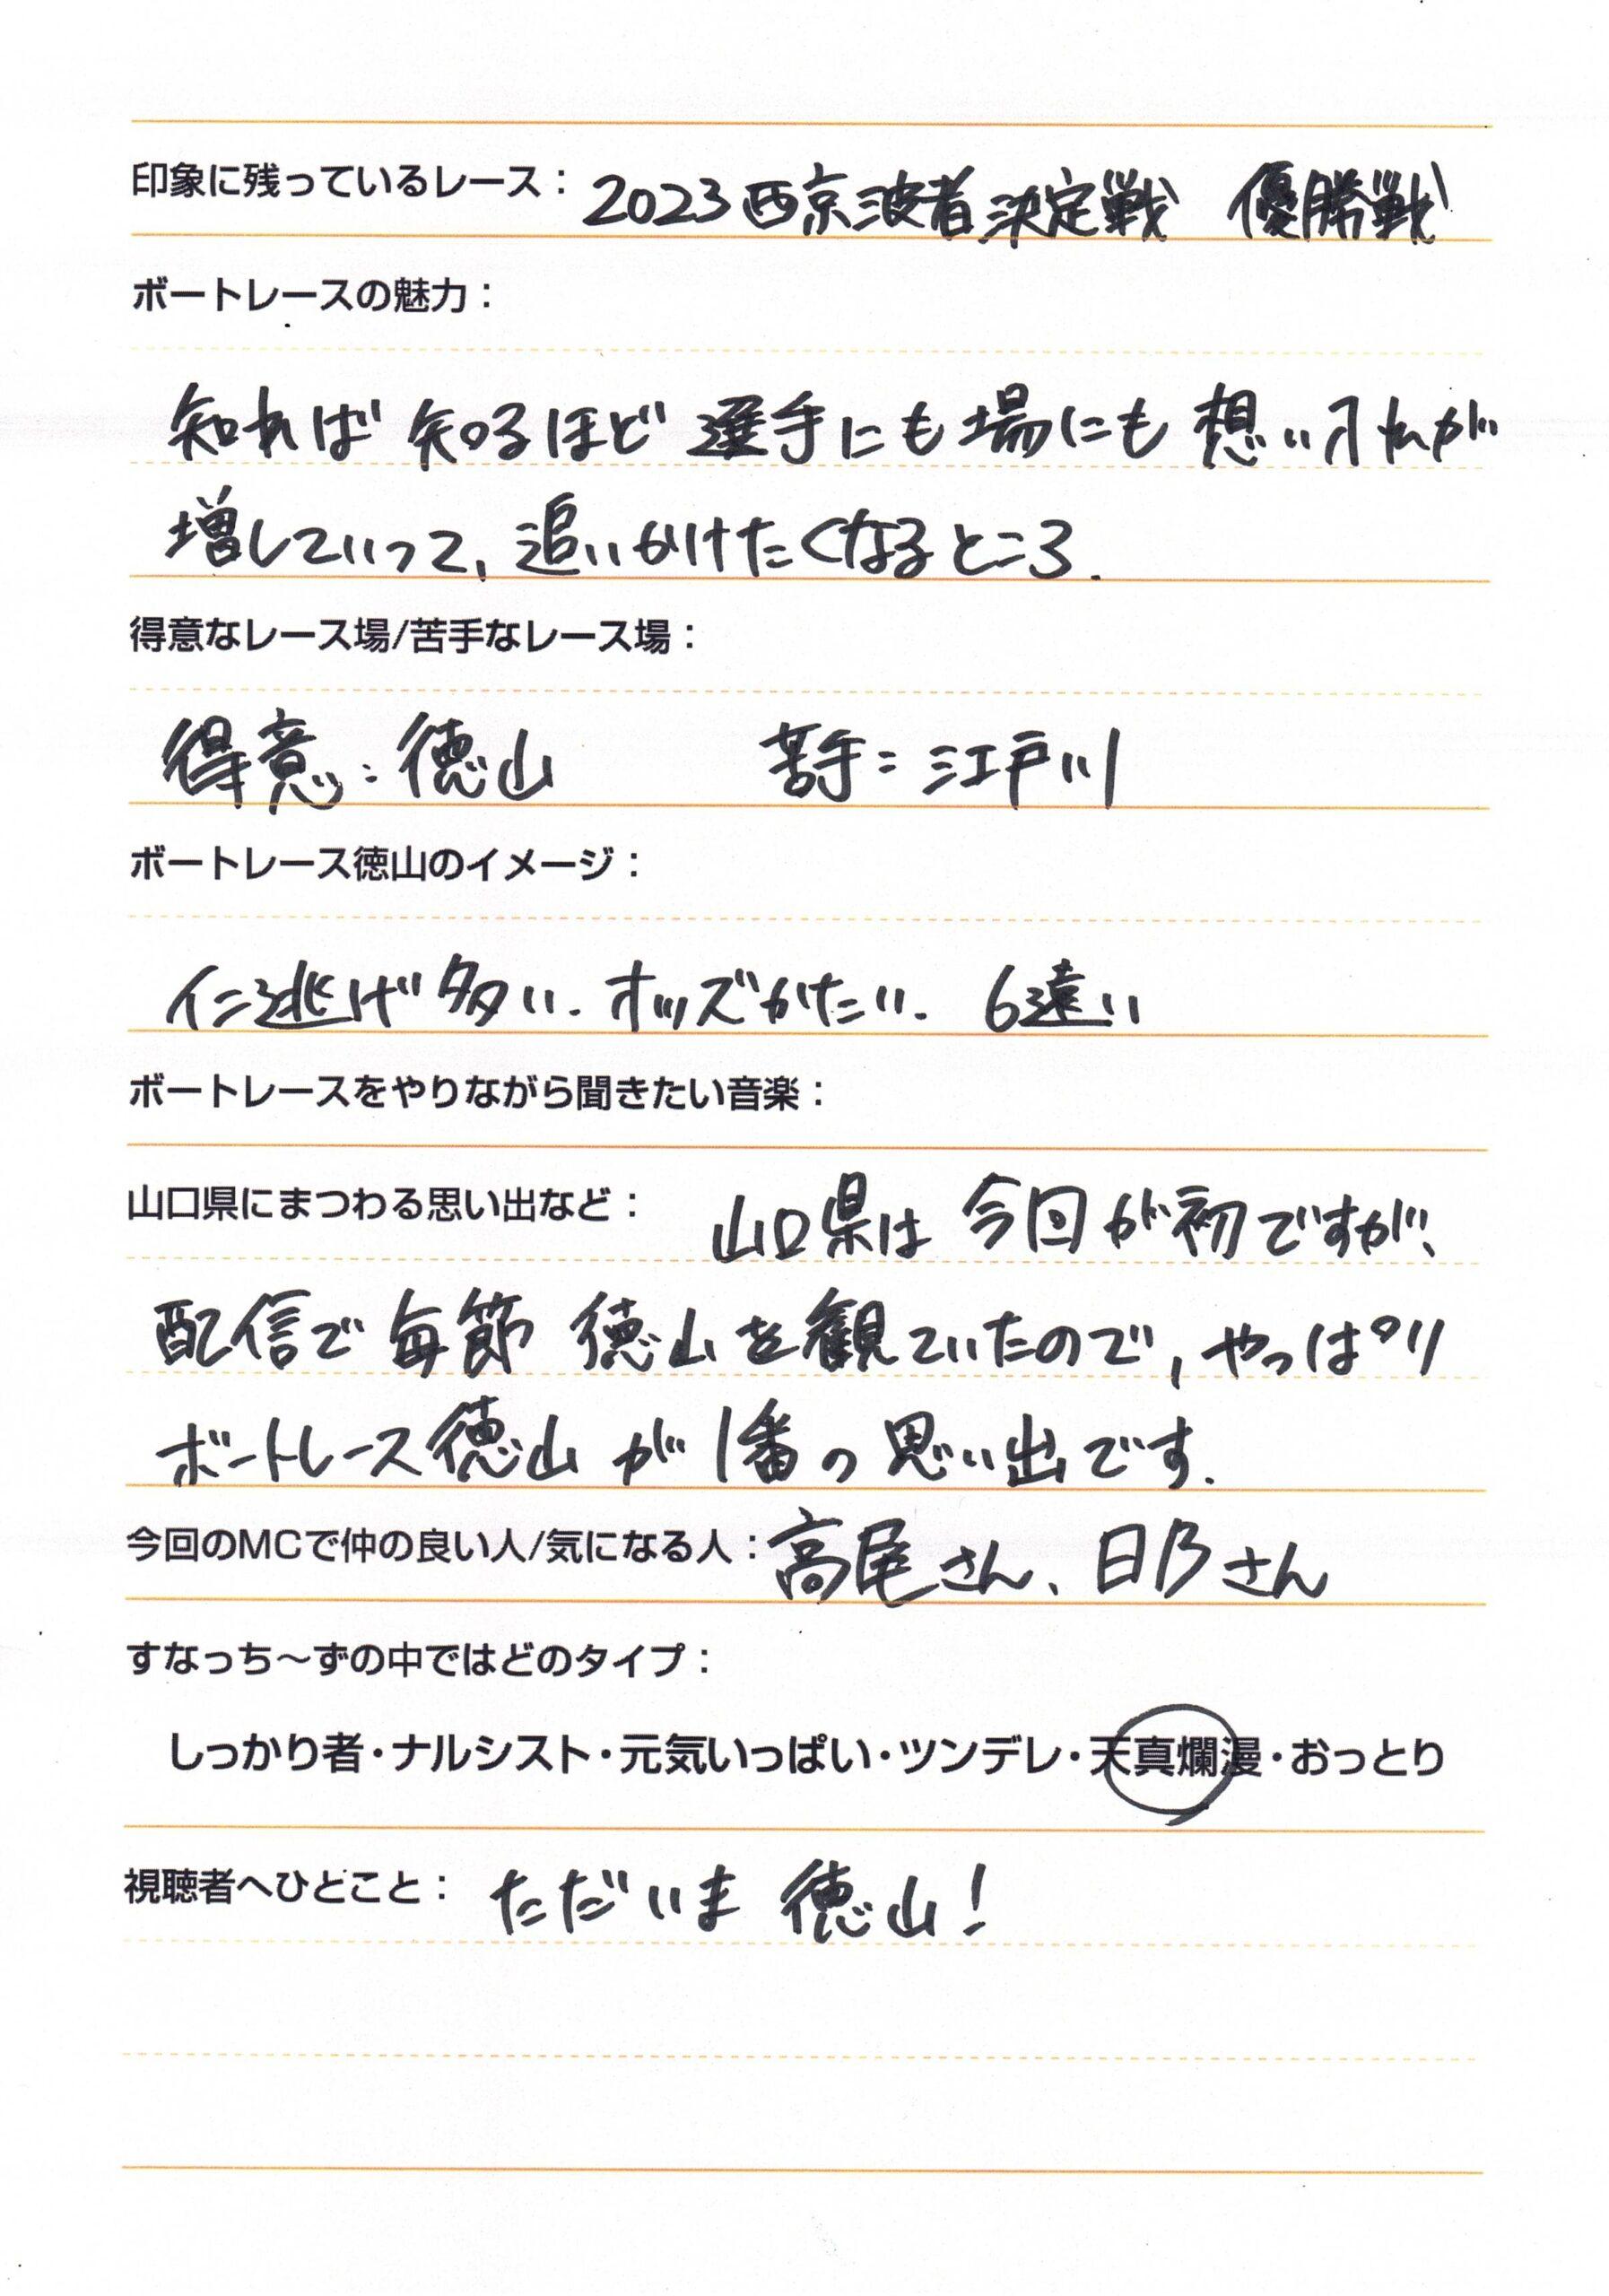 印象に残っているレース： 2023西京波者決定戦 優勝戦
ボートレースの魅力：
知れば知るほど選手にも場にも想い入れが
増していって、追いかけたくなるところ.
得意なレース場/苦手なレース場：
得意：徳山 苦手：江戸川
ボートレース徳山のイメージ：
イン逃げ多い. オッズかたい. 6遠い
ボートレースをやりながら聞きたい音楽：
山口県にまつわる思い出など： 山口県は今回が初ですが、
配信で毎節徳山を観ていたので、やっぱり
ボートレース徳山が1番の思い出です.
今回のMCで仲の良い人/気になる人：高尾さん、日乃さん
すなっち～ずの中ではどのタイプ：
しっかり者・ナルシスト・元気いっぱい・ツンデレ・天真爛漫・おっとり
視聴者へひとこと： ただいま 徳山！